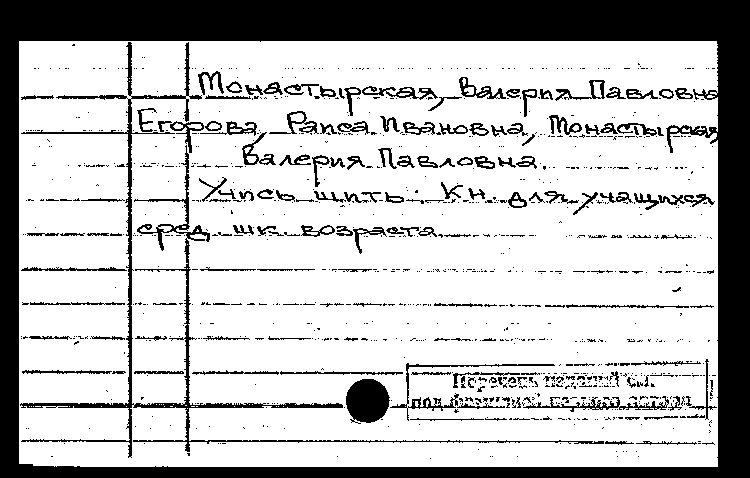 Монастырская, Валерия Павловна
Егорова, Раиса Ивановна, Монастырская,
Валерия Павловна.
Учись шить: Кн. для учащихся
сред. шк. возраста.
Перечень изданий см.
под фамилией первого автора